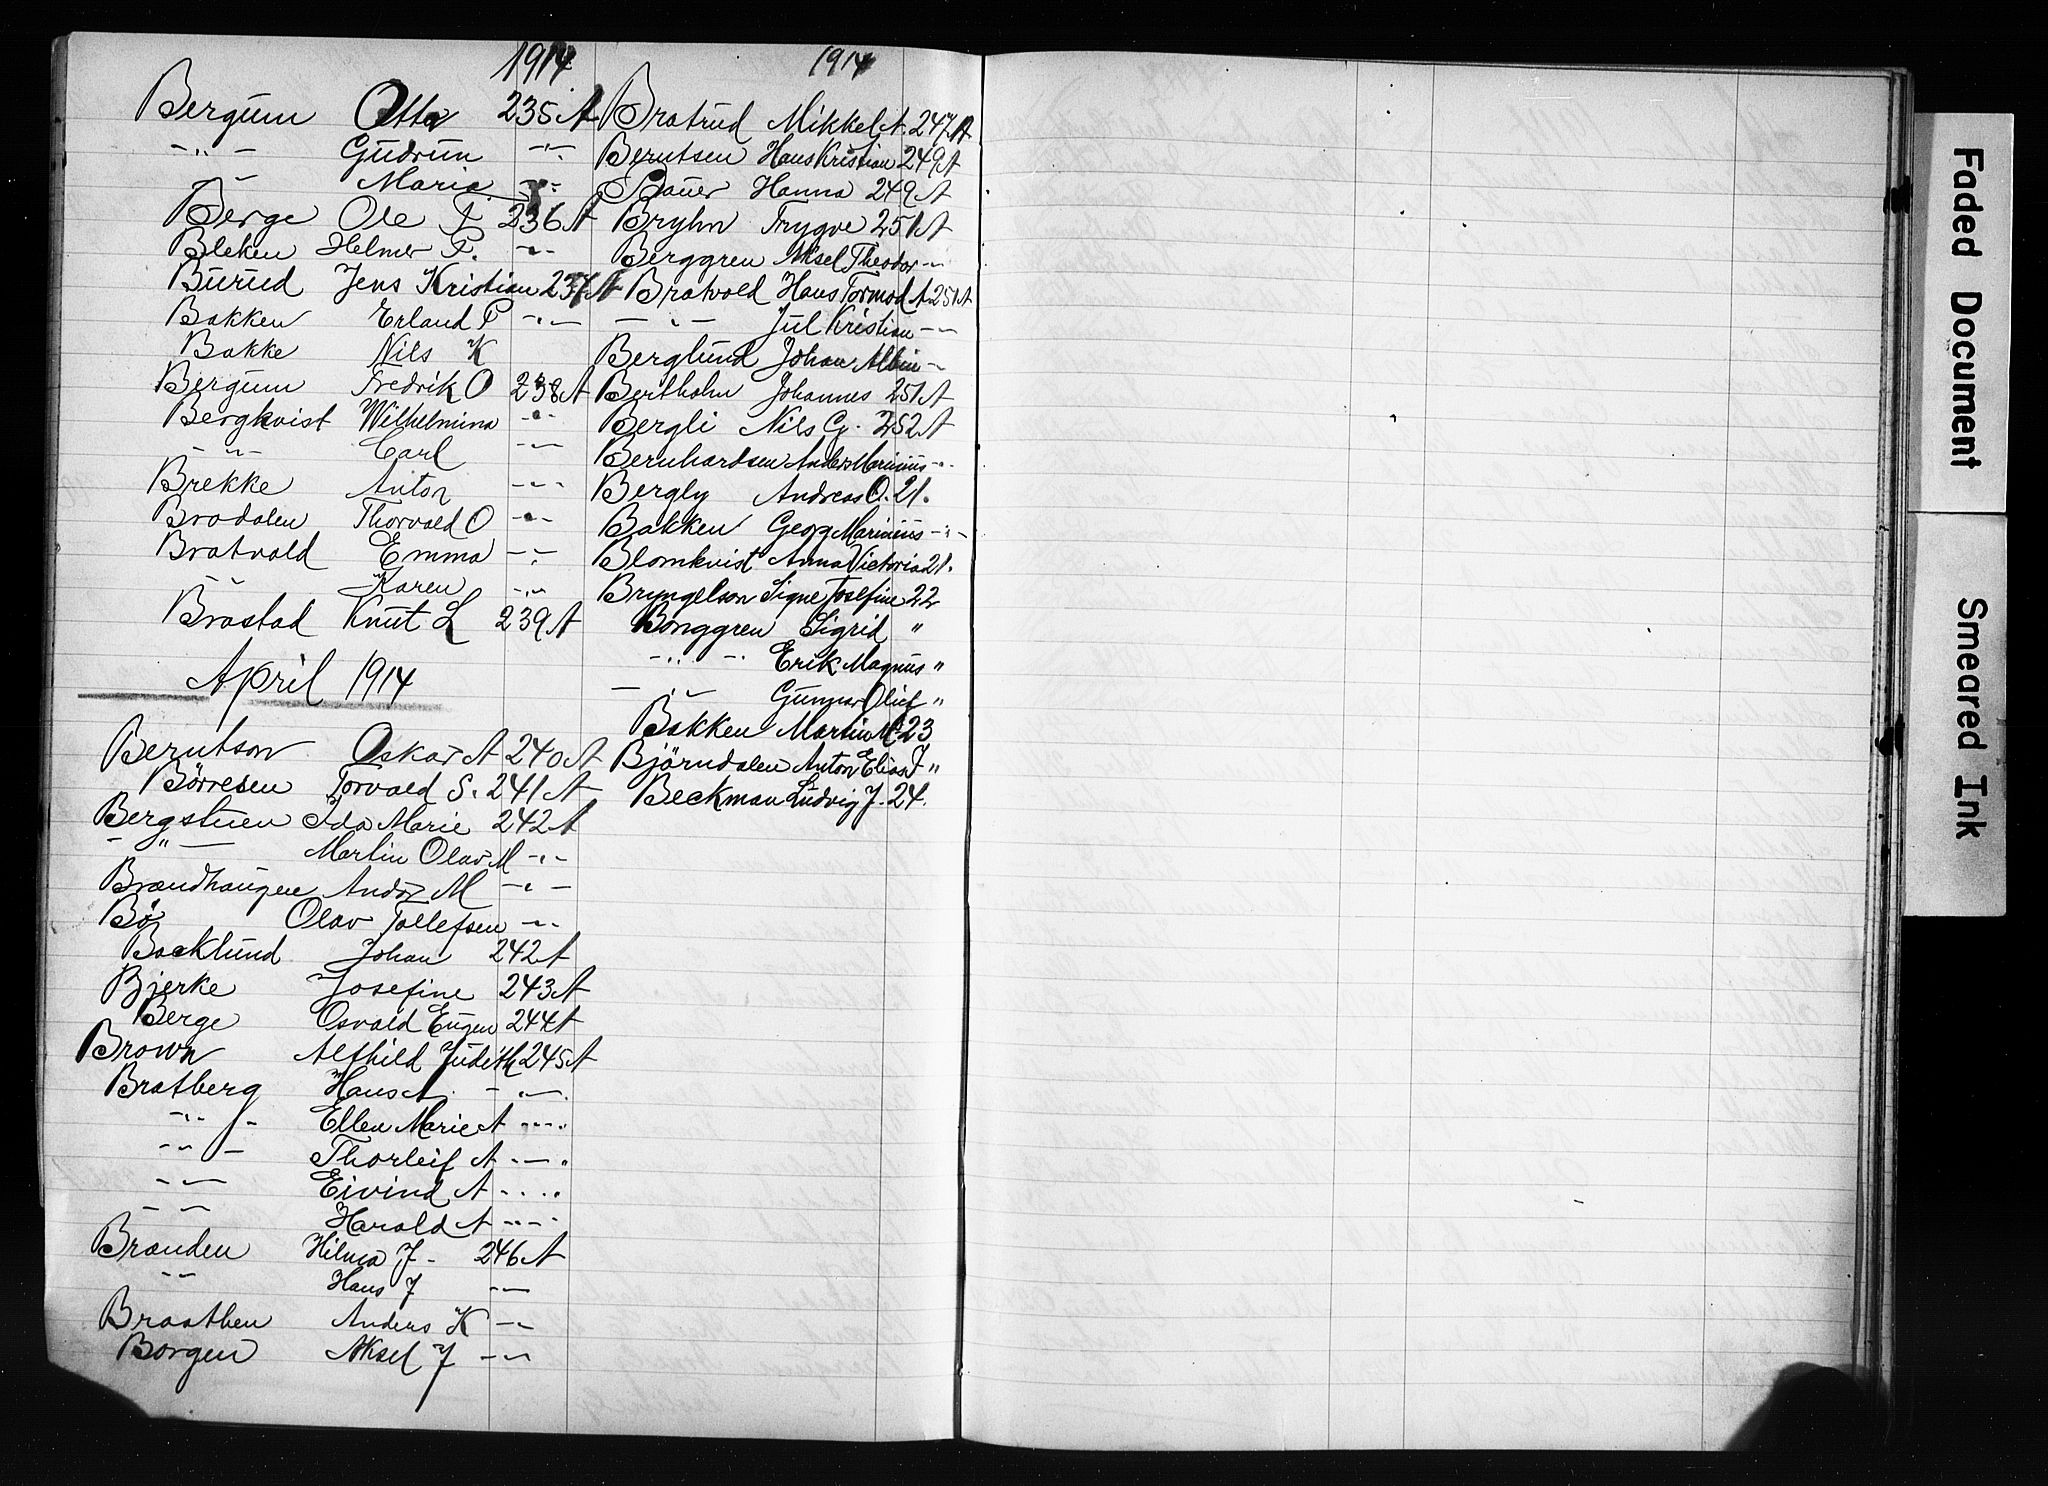 1914
Bergum Otto 235 A
-"- Gudrun -"-
-"- Maria -"-
Berge Ole T 236 A
Bleken Helmer P. -"-
Burud Jens Kristian 237 A
Bakken Erland P -"-
Bakke Nils K
Bergum Fredrik O 238 A
Bergkvist Wilhelmina -"-
-"- Carl -"-
Brekke Anton -"-
Bradalen Thorvald O -"-
Bratvold Emma -"-
-"- Karen -"-
Bråstad Knut L 239 A
April 1914
Berntson Oskar A 240 A
Børresen Torvald S. 241 A
Bergstuen Ida Marie 242 A
-"- Martin Olav M -"-
Brændhaugen Andor M -"-
Bö Olav Tollefsen -"-
Backlund Johan 242 A
Bjerke Josefine 243 A
Berge Osvald Eugen 244 A
Brown Alfhild Judith 245 A
Bratberg Hans A. -"-
-"- Ellen Marie A -"-
-"- Thorleif A -"-
-"- Eivind A -"-
-"- Harald A -"-
Brænden Hilma J - 246 A
-"- Hans J -"-
Braathen Anders K -"-
Borgen Aksel J -"-
1914
Bratrud Mikkel A. 247 A
Berntsen Hans Kristian 249 A
Bauer Hanna 249 A
Bryhn Trygve 251 A
Berggren Aksel Theodor -"-
Bratvold Hans Tormod A 251 A
-"- Jul Kristian -"-
Berglund Johan Albin -"-
Bertholm Johannes 251 A
Bergli Nils G. 252 A
Bernhardsen Anders Marinius -"-
Bergly Andreas O. 21.
Bakken Georg Marinius -"-
Blomkvist Anna Victoria 21.
Bryngelson Signe Josefine 22
Bonggren Sigrid "
-"- Erik Magnus "
-"- Gunnar Oluf "
Bakken Martin M 23
Björndalen Anton Elias J "
Beckman Ludvig J. 24.
Faded Document
Smeared Ink